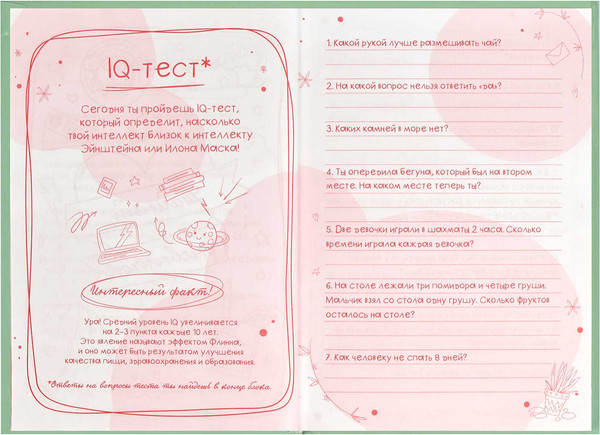 IQ-тест*
Сегодня ты пройдёшь IQ-тест,
который определит, насколько
твой интеллект близок к интеллекту
Эйнштейна или Илона Маска!
Интересный факт!
Ура! Средний уровень IQ увеличивается
на 2–3 пункта каждые 10 лет.
Это явление называют эффектом Флинна,
и оно может быть результатом улучшения
качества пищи, здравоохранения и образования.
*Ответы на вопросы теста ты найдёшь в конце блока.
1. Какой рукой лучше размешивать чай?
2. На какой вопрос нельзя ответить «да»?
3. Каких камней в море нет?
4. Ты опередила бегуна, который был на втором
месте. На каком месте теперь ты?
5. Две девочки играли в шахматы 2 часа. Сколько
времени играла каждая девочка?
6. На столе лежали три помидора и четыре груши.
Мальчик взял со стола одну грушу. Сколько фруктов
осталось на столе?
7. Как человеку не спать 8 дней?